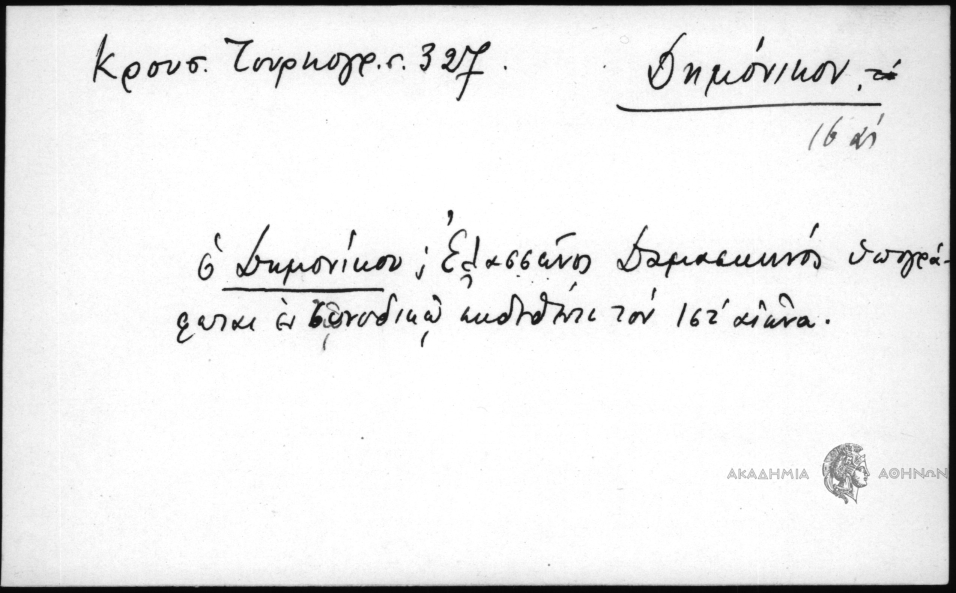 Κρουσ. Τουρκογρ. σ. 327.
Δημόνικον, τό
16 αἰ
ὁ Δημονίκου ἐ Ἐλασσῶνος Δαμασκηνός ὑπογρά-
φεται ἐν Συνοδικῷ ἐκδοθέντι τόν ιστ' αἰῶνα.
ΑΚΑΔΗΜΙΑ ΑΘΗΝΩΝ